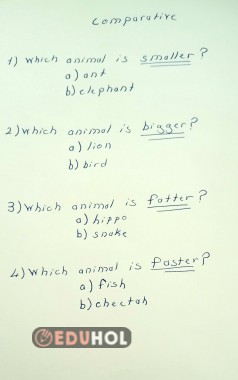 comparative
1) Which animal is smaller?
a) ant
b) elephant
2) Which animal is bigger?
a) lion
b) bird
3) Which animal is fatter?
a) hippo
b) snake
4) Which animal is faster?
a) fish
b) cheetah
EDUHOL